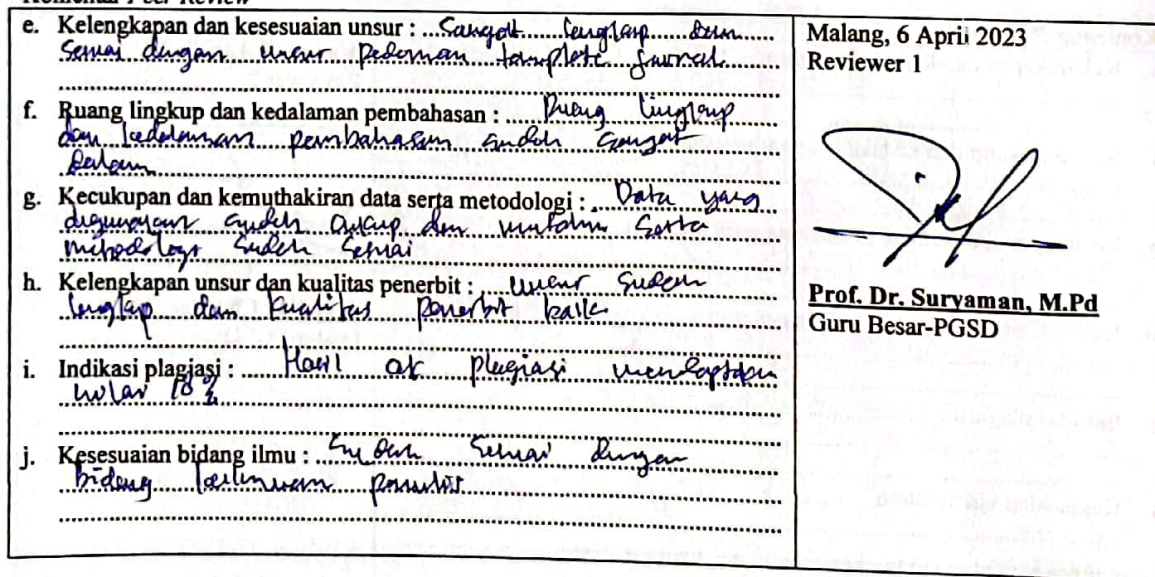 Komentar Peer Review
e. Kelengkapan dan kesesuaian unsur : Sangat lengkap dan
sesuai dengan unsur pedoman template jurnal
f. Ruang lingkup dan kedalaman pembahasan : Ruang lingkup
dan kedalaman pembahasan sudah sangat
dalam
g. Kecukupan dan kemuthakiran data serta metodologi : Data yang
digunakan sudah cukup dan serta
metodologi sudah sesuai
h. Kelengkapan unsur dan kualitas penerbit : unsur sudah
lengkap dan kualitas penerbit baik
i. Indikasi plagiasi : Hasil cek plagiasi
%
j. Kesesuaian bidang ilmu : Sudah sesuai dengan
bidang keilmuan penulis
Malang, 6 April 2023
Reviewer 1
Prof. Dr. Suryaman, M.Pd
Guru Besar-PGSD